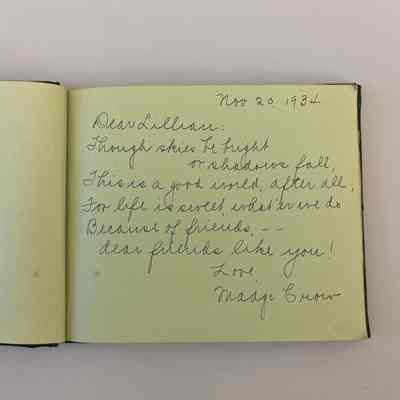 Nov 20, 1934
Dear Lillian:
Though skies be bright
or shadows fall,
This is a good world, after all;
For life is sweet, what'er we do
Because of friends, --
dear friends like you!
Love
Madge Crow